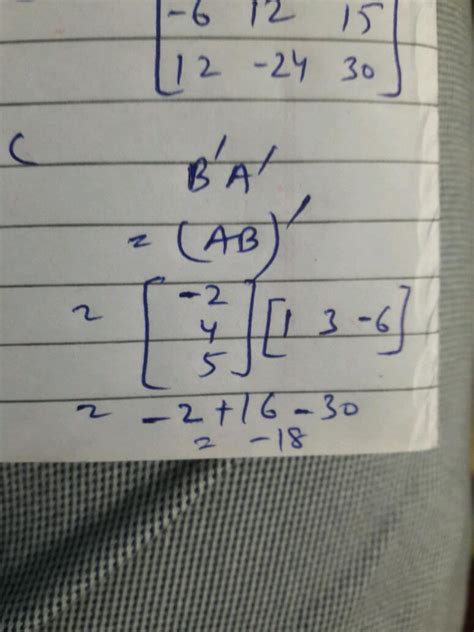 -6 12 15
12 -24 30
C
B'A'
= (AB)'
= [-2 4 5] [1 3 -6]
= -2+16-30
= -18